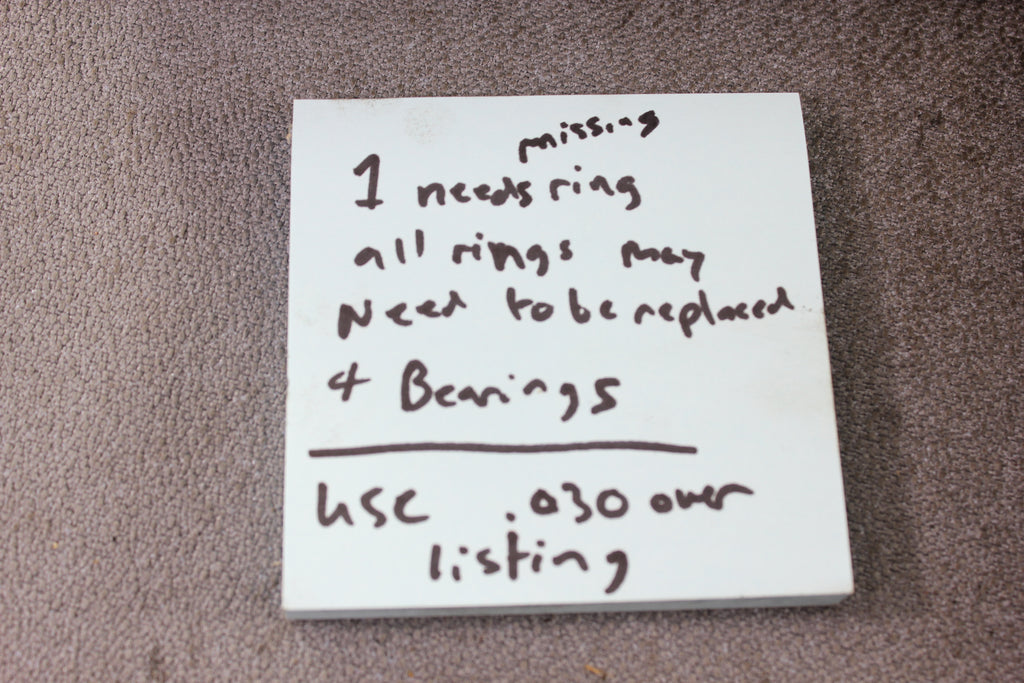 missing
1 needs ring
all rings may
Need to be replaced
& Bearings
use .030 over
listing